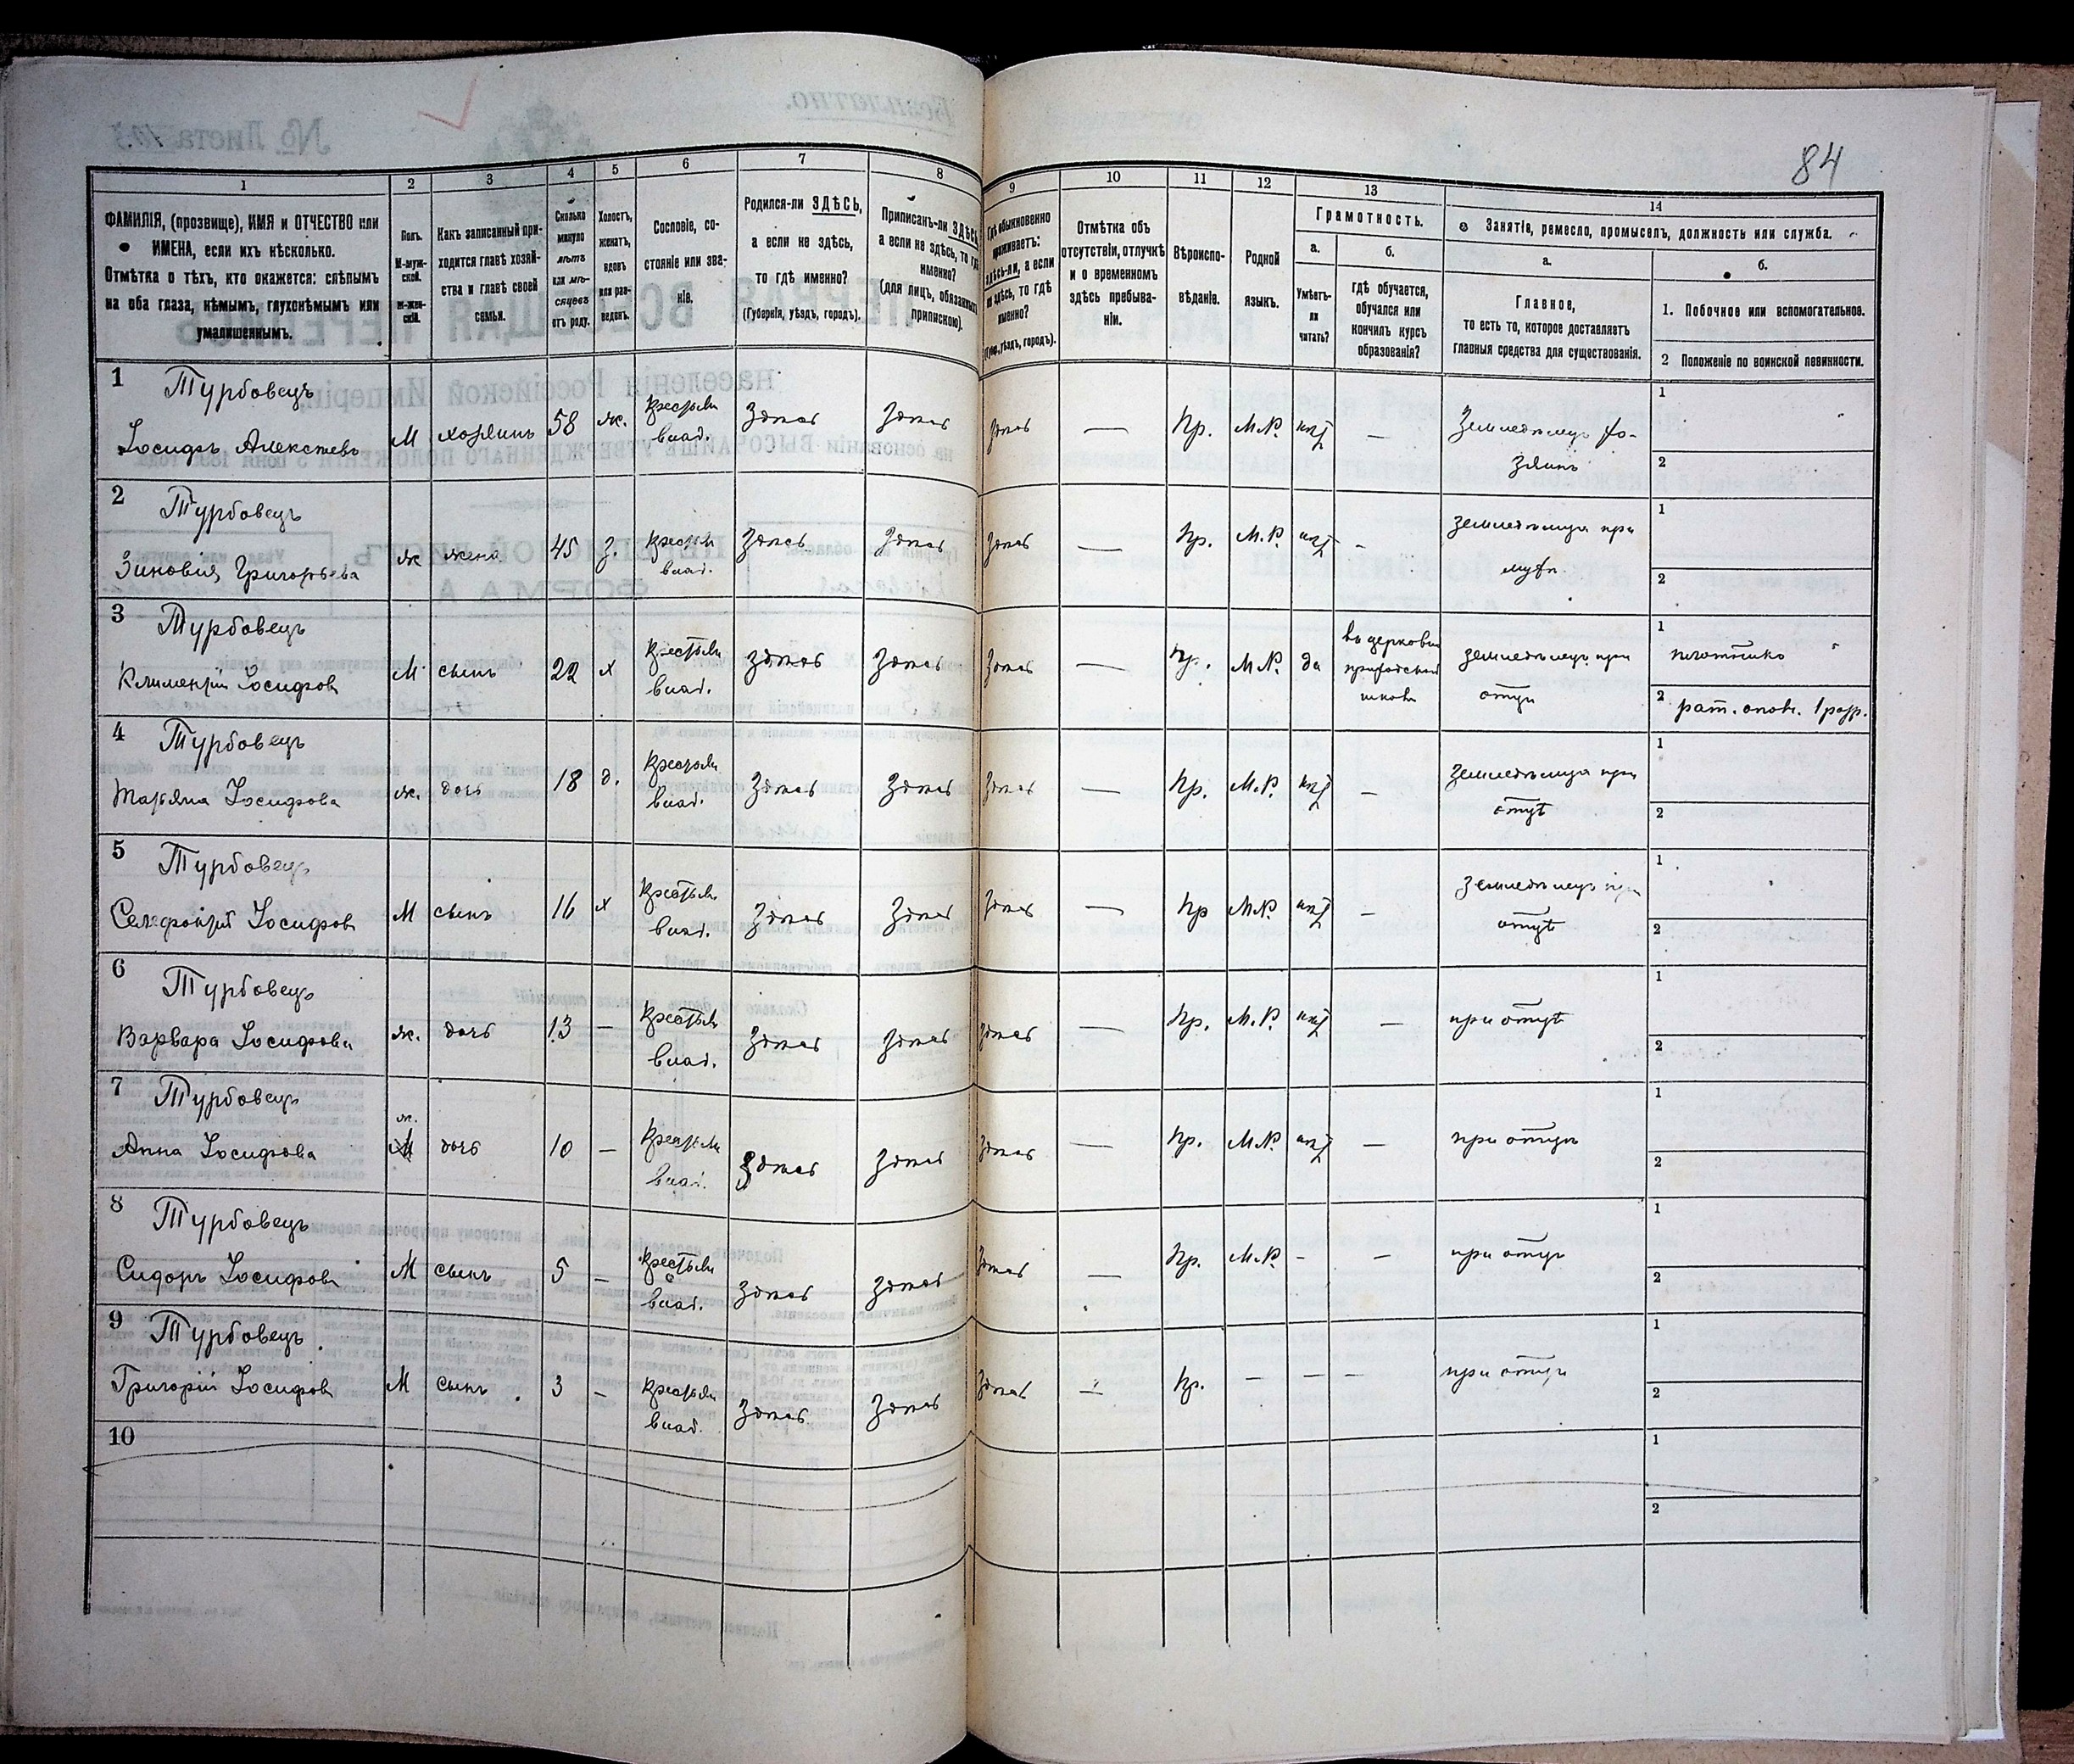 84
1 2 3 4 5 6 7 8 9 10 11 12 13 14
ФАМИЛІЯ, (прозвище), ИМЯ и ОТЧЕСТВО или
ИМЕНА, если ихъ нѣсколько.
Отмѣтка о тѣхъ, кто окажется: слѣпымъ
на оба глаза, нѣмымъ, глухонѣмымъ или
умалишеннымъ.
Полъ.
М-муж-
ской.
Ж-жен-
скій.
Какъ записанный при-
ходится главѣ хозяй-
ства и главѣ своей
семьи.
Сколько
минуло
лѣтъ
или мѣ-
сяцевъ
отъ роду.
Холостъ,
женатъ,
вдовъ
или раз-
веденъ.
Сословіе, со-
стояніе или зва-
ніе.
Родился-ли ЗДѢСЬ,
а если не здѣсь,
то гдѣ именно?
(Губернія, уѣздъ, городъ).
Приписанъ-ли ЗДѢСЬ,
а если не здѣсь, то гдѣ
именно?
(для лицъ, обязанныхъ
припискою).
Гдѣ обыкновенно
проживаетъ:
здѣсь-ли, а если
не здѣсь, то гдѣ
именно?
(Губ., уѣздъ, городъ).
Отмѣтка объ
отсутствіи, отлучкѣ
и о временномъ
здѣсь пребыва-
ніи.
Вѣроиспо-
вѣданіе.
Родной
языкъ.
Грамотность.
а.
Умѣетъ-
ли
читать?
б.
гдѣ обучается,
обучался или
кончилъ курсъ
образованія?
Занятія, ремесло, промыселъ, должность или служба.
а.
Главное,
то есть то, которое доставляетъ
главныя средства для существованія.
б.
1. Побочное или вспомогательное.
2 Положеніе по воинской повинности.
1 Турбовецъ
Іосифъ Алексѣевъ М хозяинъ 58 ж. крестьян влад. здѣсь здѣсь здѣсь — Пр. М.Р. нѣт — Земледѣлец хо-
зяинъ
1
2
2 Турбовецъ
Зиновія Григорьева ж жена 45 з. крестьян влад. здѣсь здѣсь здѣсь — Пр. М.Р. нѣт - земледѣлица при
мужѣ
1
2
3 Турбовецъ
Климентій Іосифов М сынъ 22 х крестьян влад. здѣсь здѣсь здѣсь — Пр. М.Р. да въ церковно приходской школѣ земледѣлец при
отцѣ
1 плотник
2 рат. опол. 1 разр.
4 Турбовецъ
Марьяна Іосифова ж. дочь 18 д. крестьян влад. здѣсь здѣсь здѣсь — Пр. М.Р. нѣт — земледѣлица при
отцѣ
1
2
5 Турбовецъ
Іосифов М сынъ 16 х крестьян влад. здѣсь здѣсь здѣсь — Пр М.Р. нѣт — земледѣлец при
отцѣ
1
2
6 Турбовецъ
Варвара Іосифова ж. дочь 13 — крестьян влад. здѣсь здѣсь здѣсь — Пр. М.Р. нѣт — при отцѣ
1
2
7 Турбовецъ
Анна Іосифова ж. дочь 10 — крестьян влад. здѣсь здѣсь здѣсь — Пр. М.Р. нѣт — при отцѣ
1
2
8 Турбовецъ
Сидоръ Іосифов М сынъ 5 — крестьян влад. здѣсь здѣсь здѣсь — Пр. М.Р. - — при отцѣ
1
2
9 Турбовецъ
Григорій Іосифов М сынъ 3 — крестьян влад. здѣсь здѣсь здѣсь — Пр. — — — при отцѣ
1
2
10
1
2